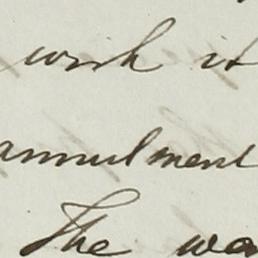 wish it
annulment
The wa